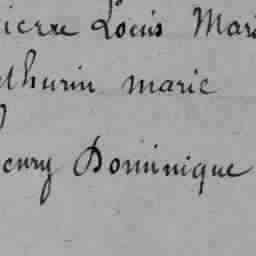 ierre Louis Mari
thurin marie
enry Dominique